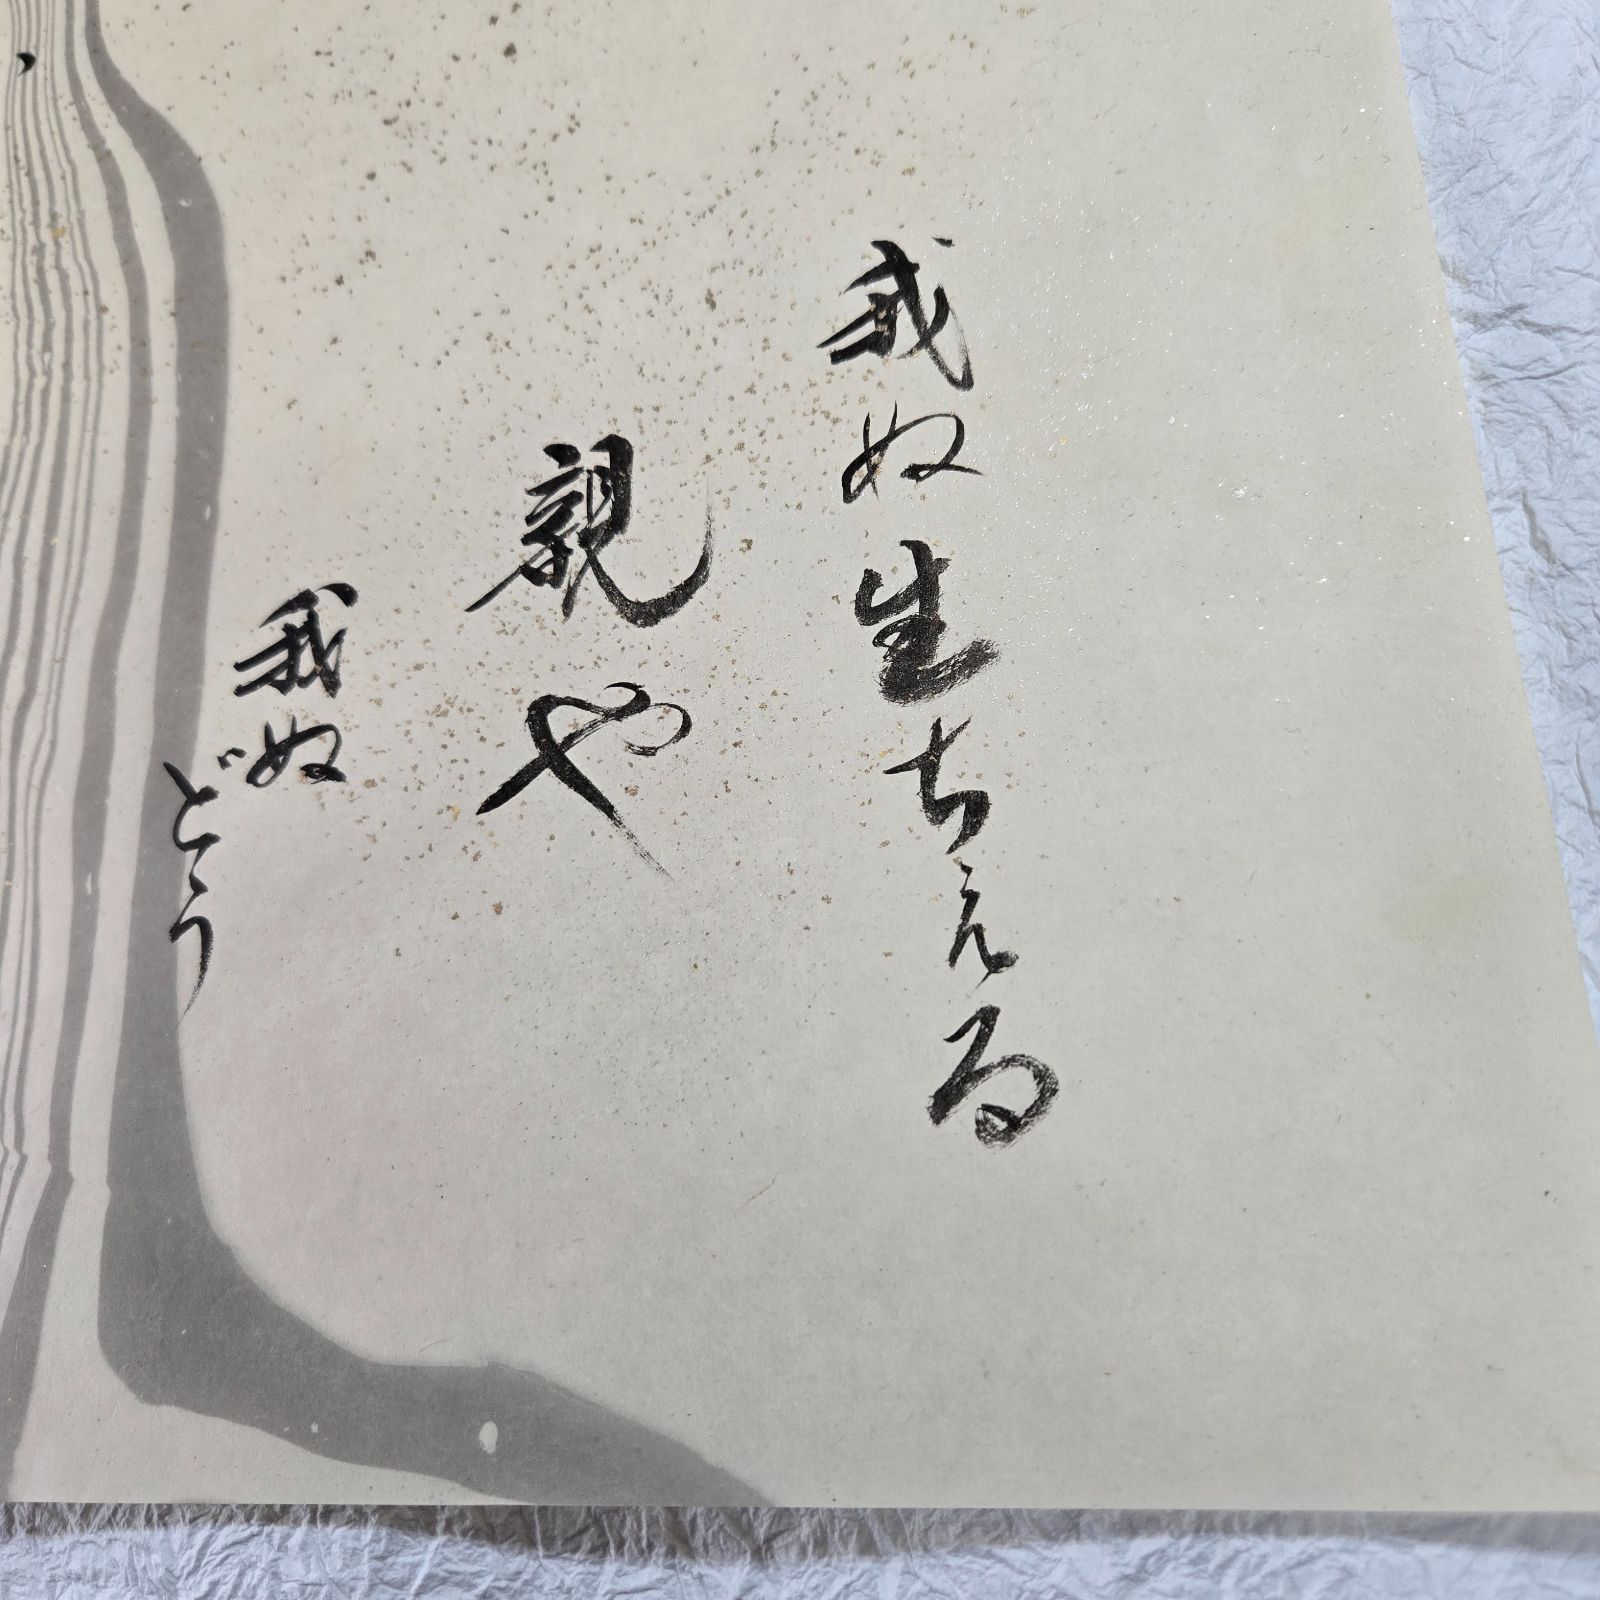 我ぬ生ちえる
親や
我ぬ
どぅ